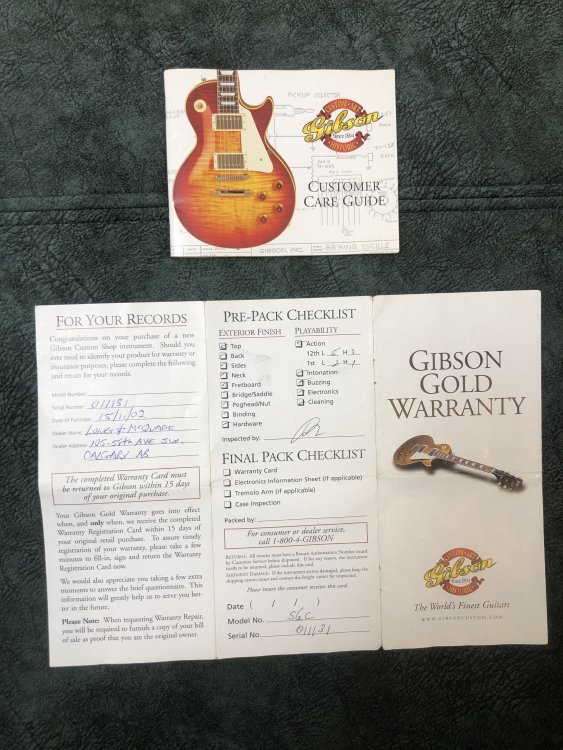 PICKUP SELECTOR
CUSTOM · ART
Gibson
Since 1894
HISTORIC
CUSTOMER
CARE GUIDE
GIBSON, INC.
BB KING LUCILLE
FOR YOUR RECORDS
Congratulations on your purchase of a new
Gibson Custom Shop instrument. Should you
ever need to identify your product for warranty or
insurance purposes, please complete the following
and retain for your records.
Model Number:
Serial Number: 011131
Date of Purchase: 15/11/02
Dealer Name: LONG & McQUADE
Dealer Address: 105-58th AVE S.W.
CALGARY AB
The completed Warranty Card must
be returned to Gibson within 15 days
of your original purchase.
Your Gibson Gold Warranty goes into effect
when, and only when, we receive the completed
Warranty Registration Card within 15 days of
your original retail purchase. To assure timely
registration of your warranty, please take a few
minutes to fill-in, sign and return the Warranty
Registration Card now.
We would also appreciate you taking a few extra
moments to answer the brief questionnaire. This
information will greatly help us to serve you bet-
ter in the future.
Please Note: When requesting Warranty Repair,
you will be required to furnish a copy of your bill
of sale as proof that you are the original owner.
PRE-PACK CHECKLIST
EXTERIOR FINISH
Top
Back
Sides
Neck
Fretboard
Bridge/Saddle
Peghead/Nut
Binding
Hardware
PLAYABILITY
Action
12th L 5 H 3
1st L 2 H 1
Intonation
Buzzing
Electronics
Cleaning
Inspected by:
FINAL PACK CHECKLIST
Warranty Card
Electronics Information Sheet (if applicable)
Tremolo Arm (if applicable)
Case Inspection
Packed by:
For consumer or dealer service,
call 1-800-4-GIBSON
RETURNS: All returns must have a Return Authorization Number issued
by Customer Service before shipment. If for any reason, the instrument
needs to be returned, please include this card.
SHIPMENT DAMAGE: If the instrument arrives damaged, please keep the
shipping carton intact and contact the freight carrier for inspection.
Please insure the consumer receives this card.
Date ( / / )
Model No. S6C
Serial No. 011131
GIBSON
GOLD
WARRANTY
CUSTOM · ART
Gibson
Since 1894
HISTORIC
The World's Finest Guitars
WWW.GIBSONCUSTOM.COM